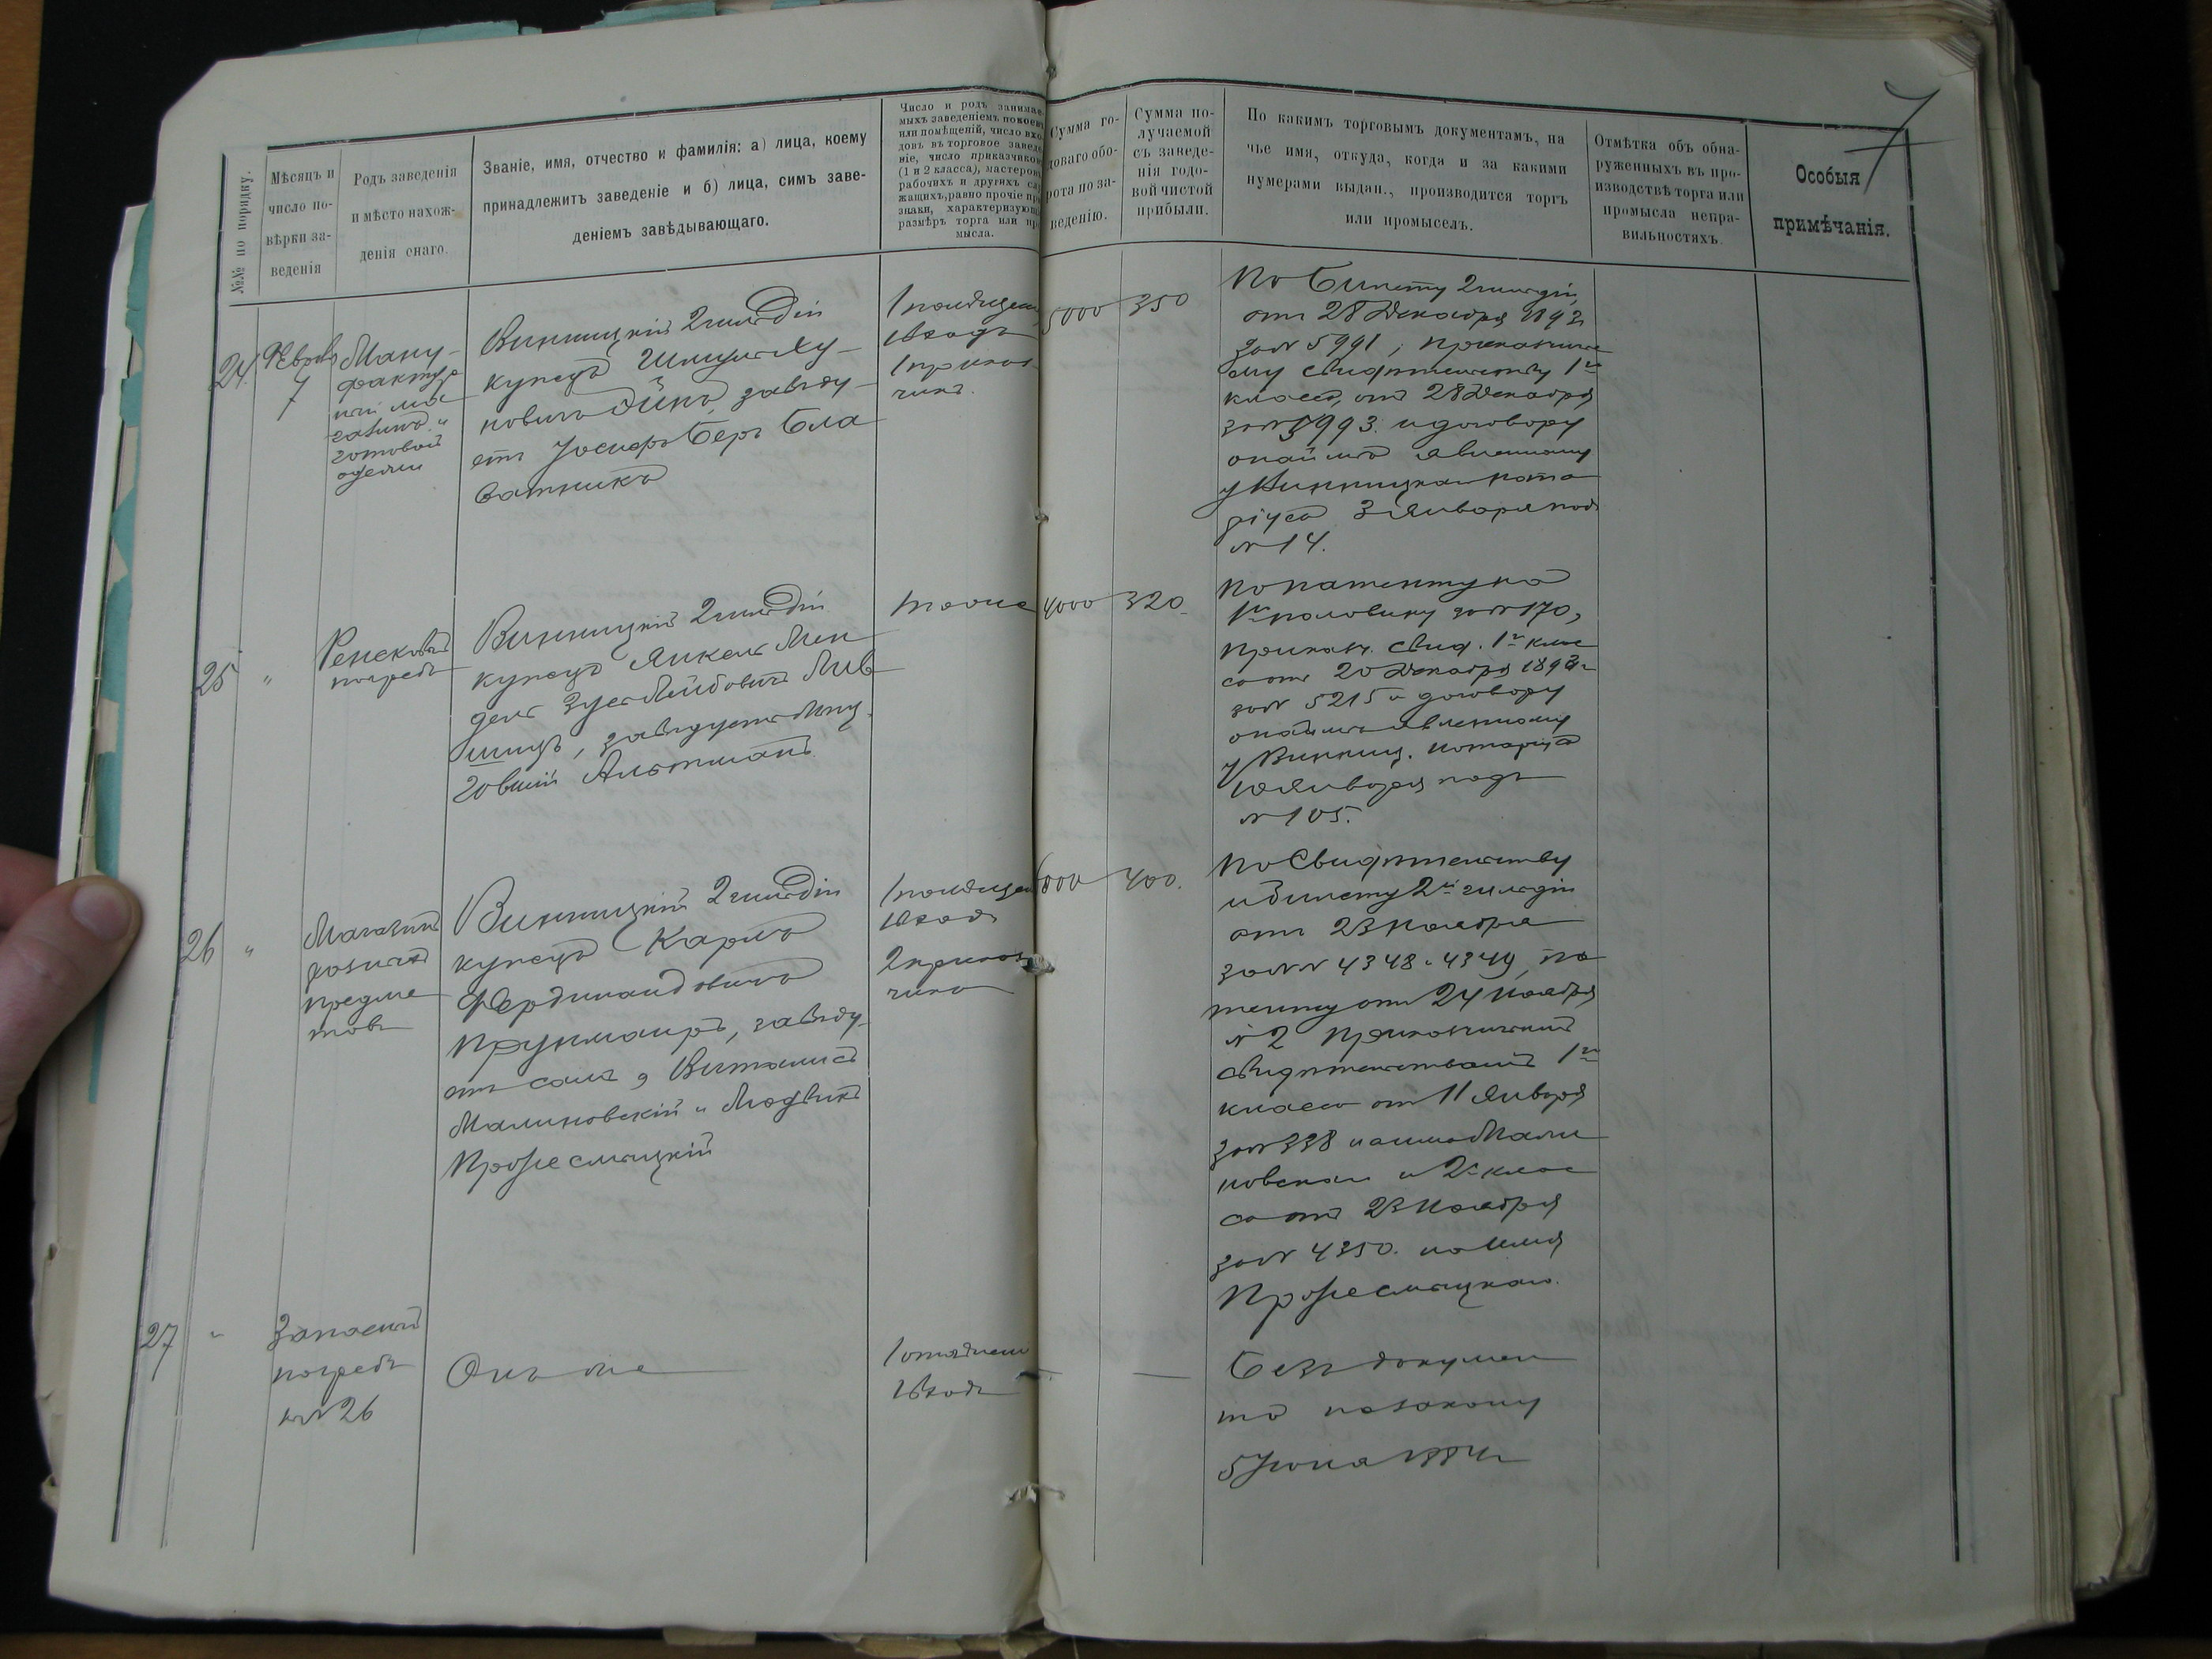 7
№№ по порядку.
Мѣсяцъ и
число по-
вѣрки за-
веденія
Родъ заведенія
и мѣсто нахож-
денія онаго.
Званіе, имя, отчество и фамилія: а) лица, коему
принадлежитъ заведеніе и б) лица, симъ заве-
деніемъ завѣдывающаго.
Число и родъ занимае-
мыхъ заведеніемъ покоевъ
или помѣщеній, число вхо-
довъ въ торговое заведе-
ніе, число приказчиковъ
(1 и 2 класса), мастеровъ
рабочихъ и другихъ слу
жащихъ, равно прочіе при
знаки, характеризующ
размѣръ торга или про
мысла.
Сумма го-
доваго обо-
рота по за-
веденію.
Сумма по-
лучаемой
съ заведе-
нія годо-
вой чистой
прибыли.
По какимъ торговымъ документамъ, на
чье имя, откуда, когда и за какими
нумерами выдан., производится торгъ
или промыселъ.
Отмѣтка объ обна-
руженныхъ въ про-
изводствѣ торга или
промысла непра-
вильностяхъ.
Особыя
примѣчанія.
24
Февраля
7
Ману-
фактур
ный ма
газинъ и
готовой
одежи
Винницкій 2 гильдіи
купецъ Шмуль Ну-
новичъ завѣду-
етъ Іосифъ Беръ Бла
ватникъ
1 помѣщен
1 входъ
1 приказ
чикъ.
5000
350
По билету 2 гильдіи
отъ 28 Декабря 1893
за № 5991, приказчичь
ему свидѣтельству 1го
класса, отъ 28 Декабря
за № 5993. и договору
о наймѣ явленному
у Винницкаго нота
ріуса 3 Января подъ
№ 14.
25
"
Ренсковый
погребъ
Винницкій 2 гильдіи
купецъ Янкель Мен
дель Зусь Лейбовичъ Лив
шицъ, завѣдуетъ
Альтманъ
1 тоже
4000
320
По патенту на
1ю половину за № 170,
приказч. свид. 1го клас
са отъ 20 Декабря 1893 г
за № 5215 и договору
о наймѣ явленному
у Винниц. нотаріуса
10 Января подъ
№ 105.
26
"
Магазинъ
разныхъ
предме
товъ
Винницкій 2 гильдіи
купецъ Карлъ
Фердинандовичъ
Прукмаиръ, завѣду-
етъ самъ, Виталисъ
Малиновскій и Людвикъ
1 помѣщен
1 входъ
2 приказ
чика
6000
400.
По свидѣтельству
и билету 2й гильдіи
отъ 23 Ноября
за №№ 4348 и 4349, па
тенту отъ 24 Ноября
№ 2 приказчичьимъ
свидѣтельствамъ 1го
класса отъ 11 Января
за № 338 на имя Мали
новскаго и 2го клас
са отъ 23 Ноября
за № 4350. на имя
27
"
Запасный
погребъ
къ № 26
Онъ же
1 отдѣлен
1 входъ
—
—
Безъ докумен
та по закону
5 Іюня 1884 г